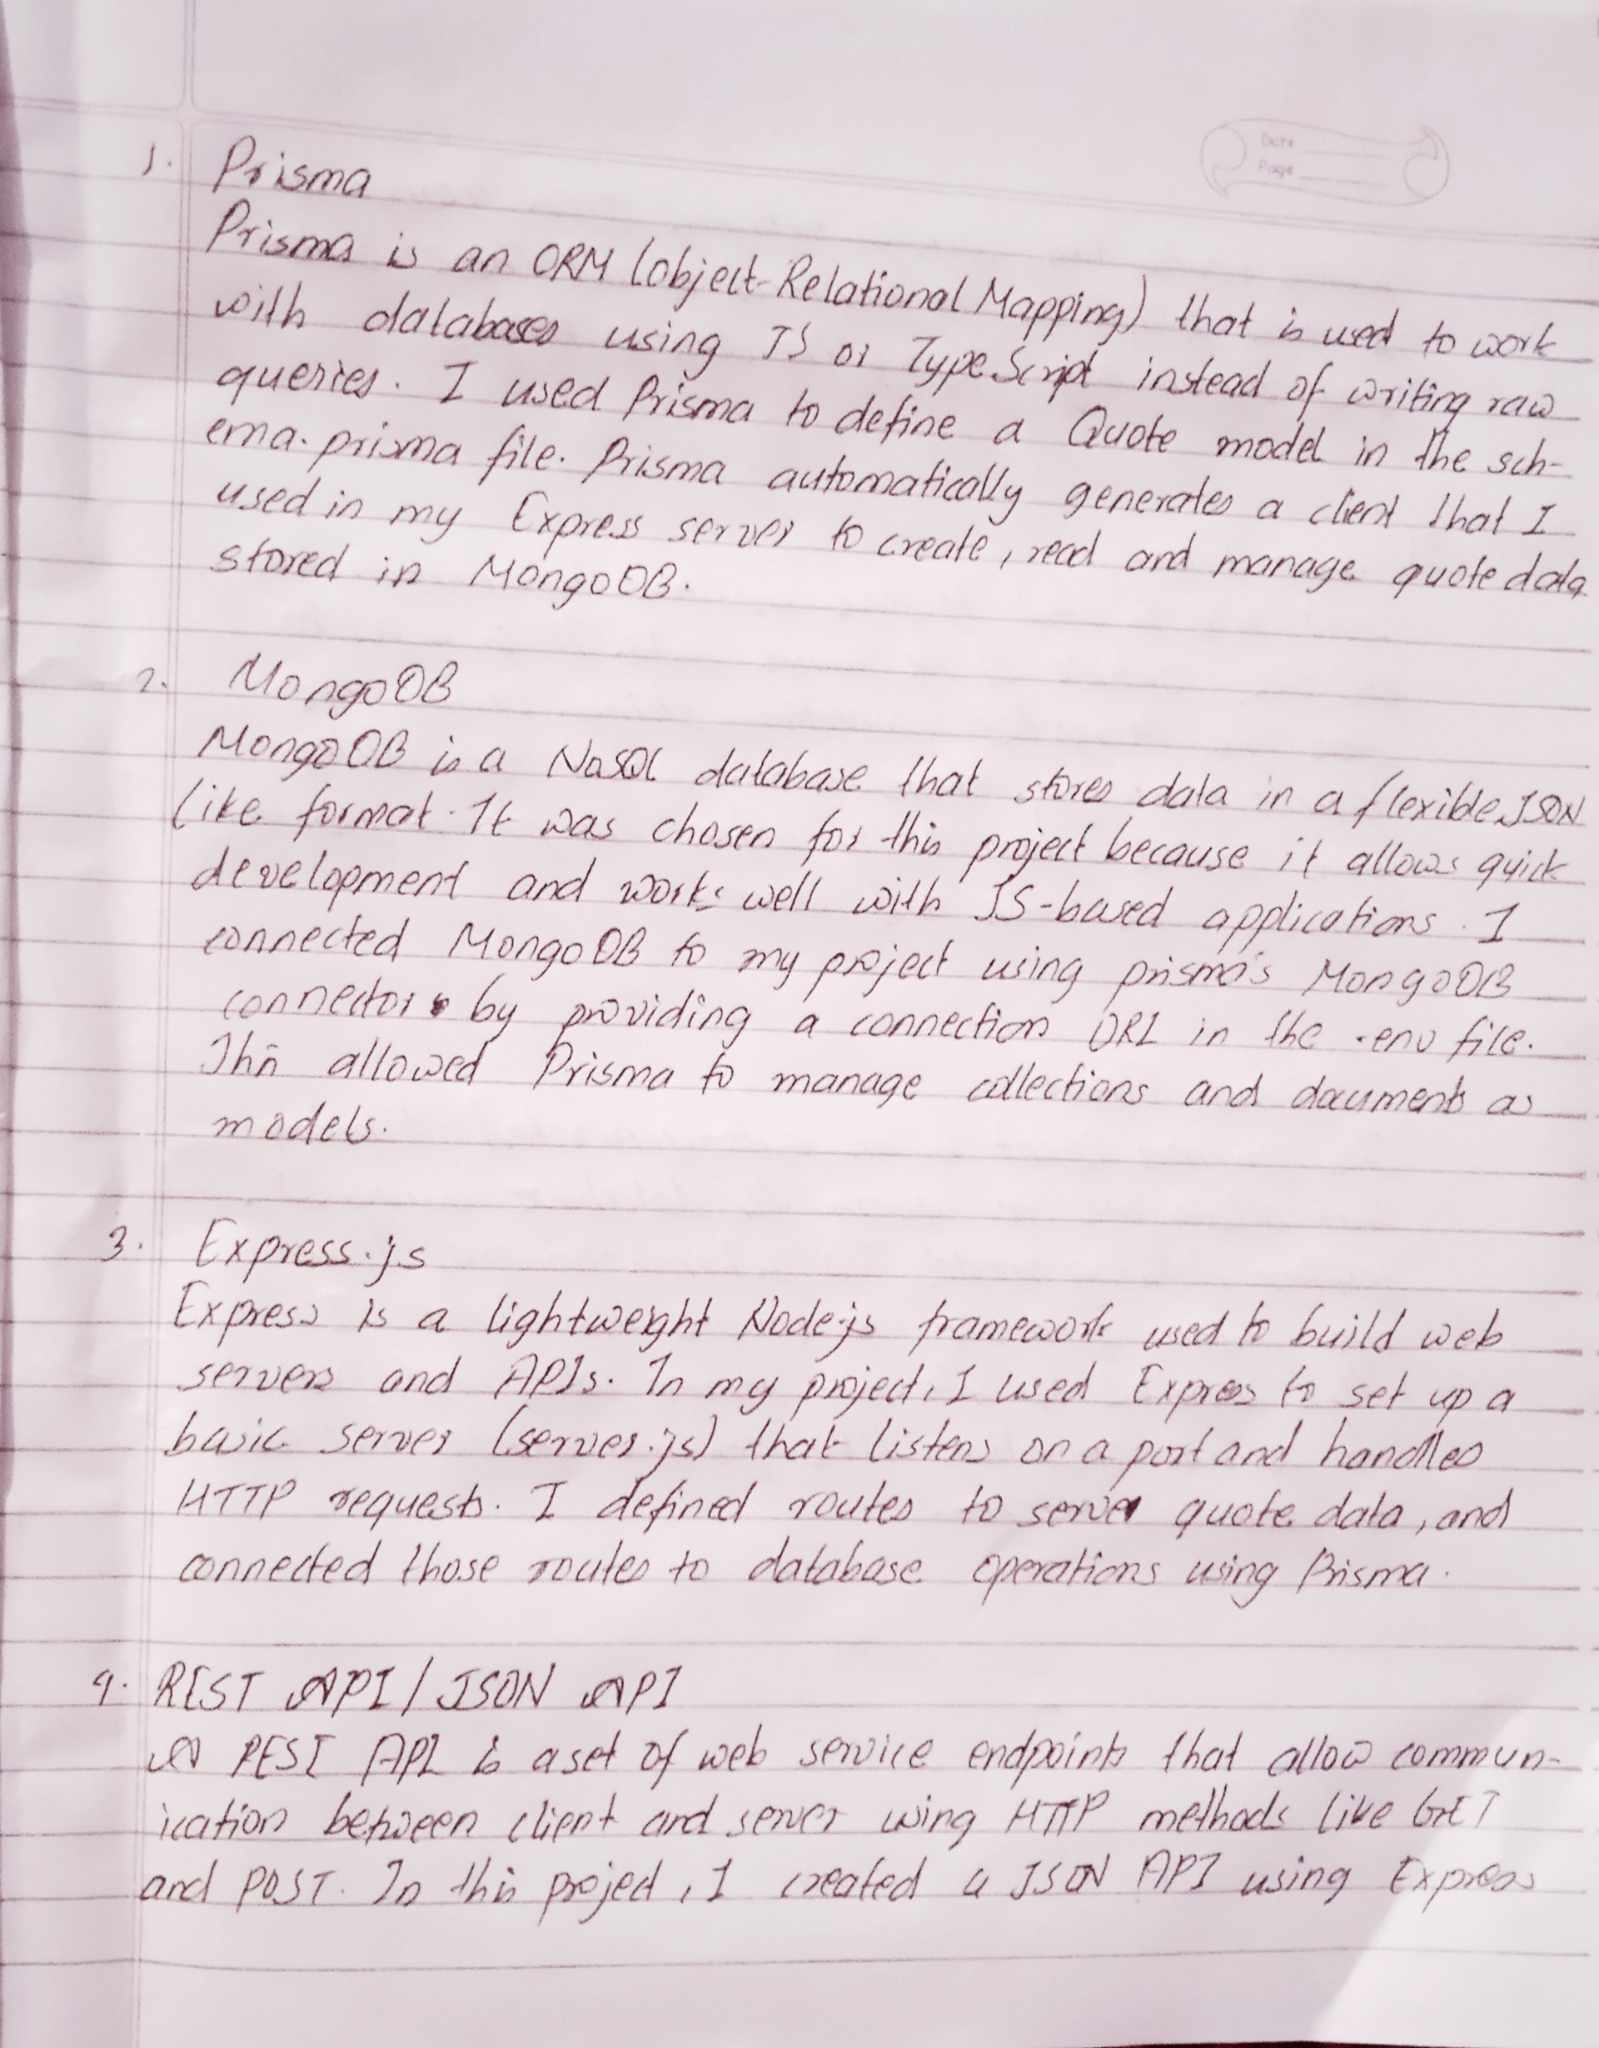 Date
Page
1. Prisma
Prisma is an ORM (object-Relational Mapping) that is used to work
with databases using JS or TypeScript instead of writing raw
queries. I used Prisma to define a Quote model in the sch-
ema.prisma file. Prisma automatically generates a client that I
used in my Express server to create, read and manage quote data
stored in MongoDB.
2. MongoDB
MongoDB is a NoSQL database that stores data in a flexible JSON
like format. It was chosen for this project because it allows quick
development and works well with JS-based applications. I
connected MongoDB to my project using prisma's MongoDB
connector by providing a connection URL in the .env file.
This allowed Prisma to manage collections and documents as
models.
3. Express.js
Express is a lightweight Node.js framework used to build web
servers and APIs. In my project, I used Express to set up a
basic server (server.js) that listens on a port and handles
HTTP requests. I defined routes to serve quote data, and
connected those routes to database operations using Prisma.
4. REST API / JSON API
A REST API is a set of web service endpoints that allow commun-
ication between client and server using HTTP methods like GET
and POST. In this project, I created a JSON API using Express